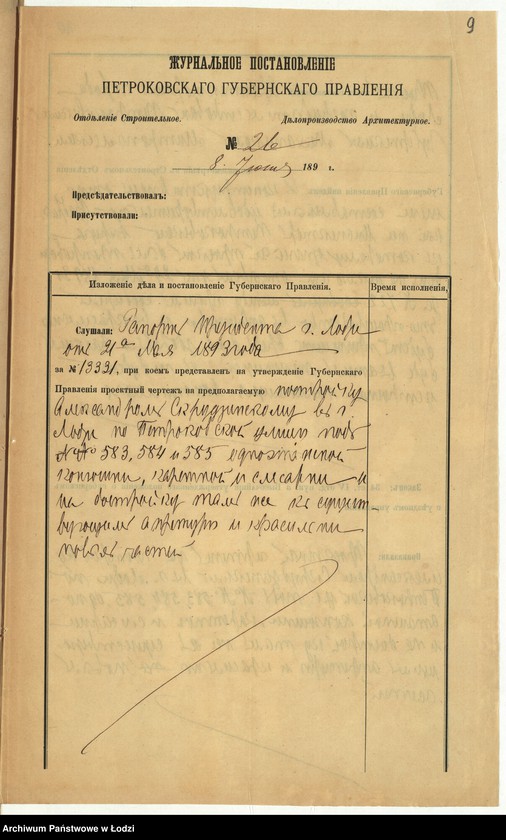 9
ЖУРНАЛЬНОЕ ПОСТАНОВЛЕНІЕ
ПЕТРОКОВСКАГО ГУБЕРНСКАГО ПРАВЛЕНІЯ
Отдѣленіе Строительное. Дѣлопроизводство Архитектурное.
№ 26
8 Іюня 189 г.
Предсѣдательствовалъ:
Присутствовали:
Изложеніе дѣла и постановленіе Губернскаго Правленія. Время исполненія.
Слушали: Рапортъ Президента г. Лодзи
отъ 21го Мая 1893 года
за № 13331, при коемъ представленъ на утвержденіе Губернскаго
Правленія проектный чертежъ на предполагаемую постройку
Александромъ въ г.
Лодзи по Петроковской улицѣ подъ
№№ 583, 584 и 585 одноэтажной
конюшни, каретной и слесарни и
на достройку тамъ же къ сущест-
вующимъ апретурѣ и красильни
новыхъ частей
Archiwum Państwowe w Łodzi